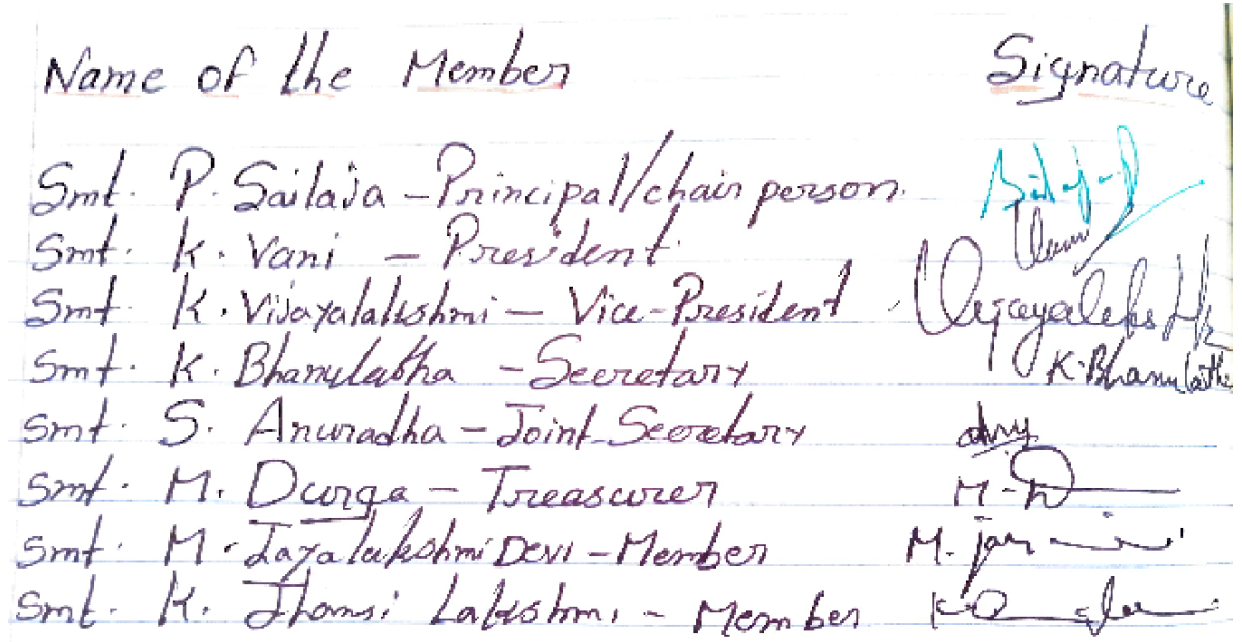 Name of the Member Signature
Smt. P. Sailaja - Principal/chair person.
Smt. K. Vani - President.
Smt. K. Vijayalakshmi - Vice-President Vijayalakshmi
Smt. K. Bhanulatha - Secretary K. Bhanulatha
Smt. S. Anuradha - Joint Secretary
Smt. M. Durga - Treasurer M.
Smt. M. Jayalakshmi Devi - Member M.
Smt. K. Jhansi Lakshmi - Member